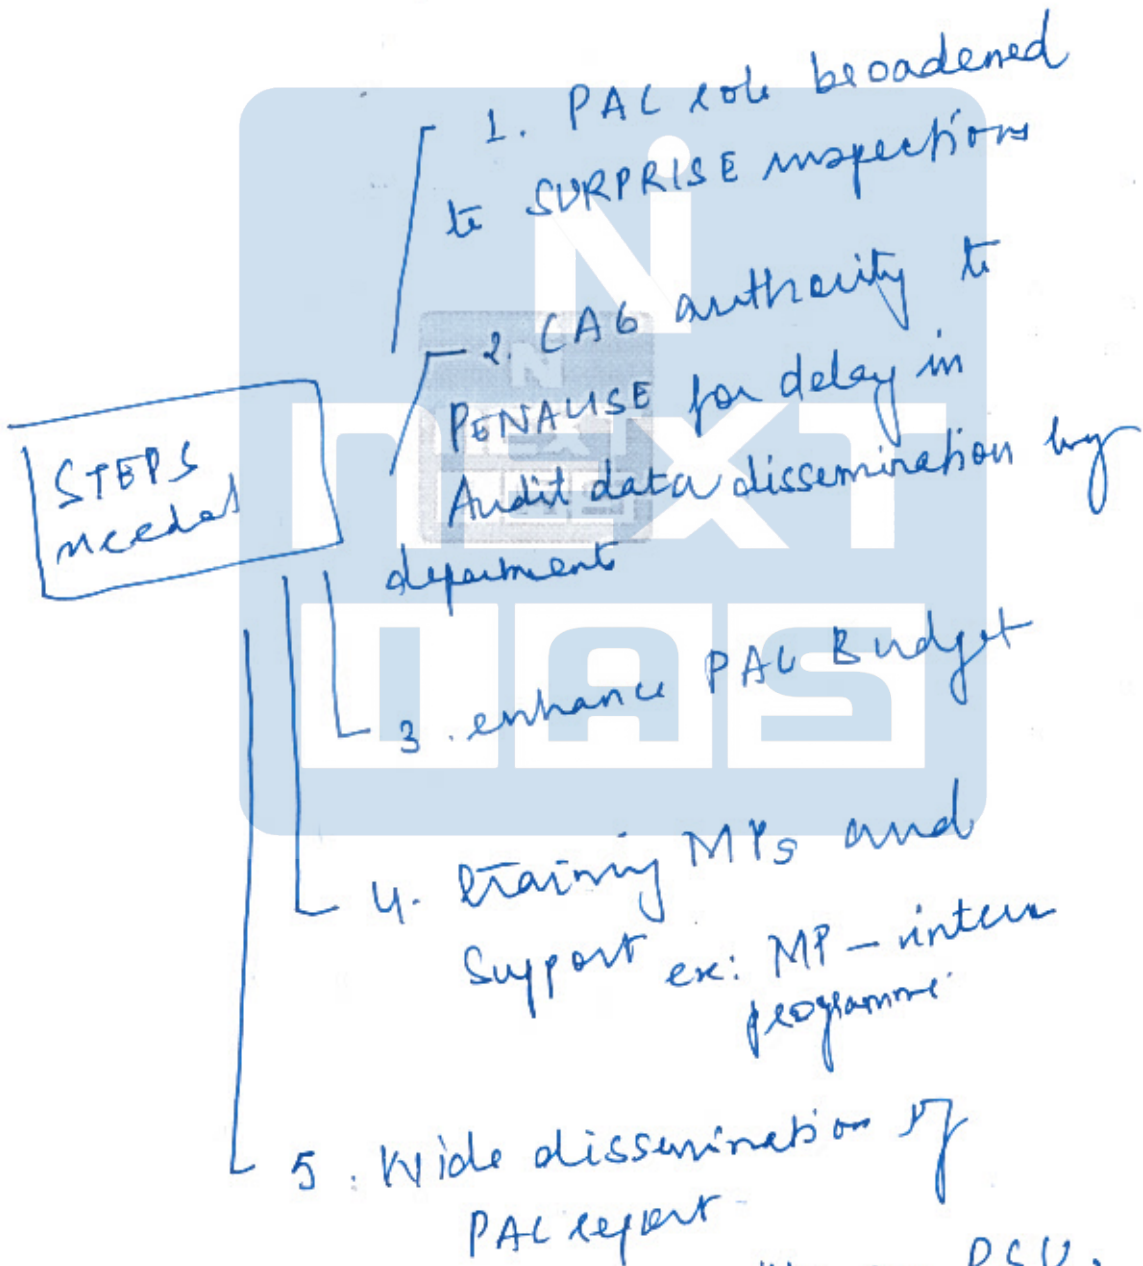 1. PAC role broadened
to SURPRISE inspections
2. CAG authority to
PENALISE for delay in
Audit data dissemination by
department
STEPS
needed
3. enhance PAC Budget
4. training MPs and
Support ex: MP - intern
programme
5. Wide dissemination of
PAC report
PSU.
NEXT
IAS